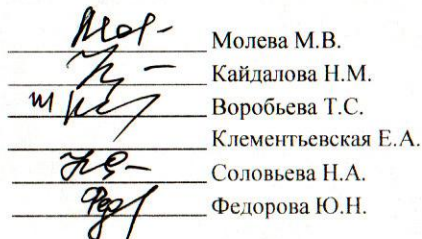 Молева М.В.
Кайдалова Н.М.
Воробьева Т.С.
Клементьевская Е.А.
Соловьева Н.А.
Федорова Ю.Н.